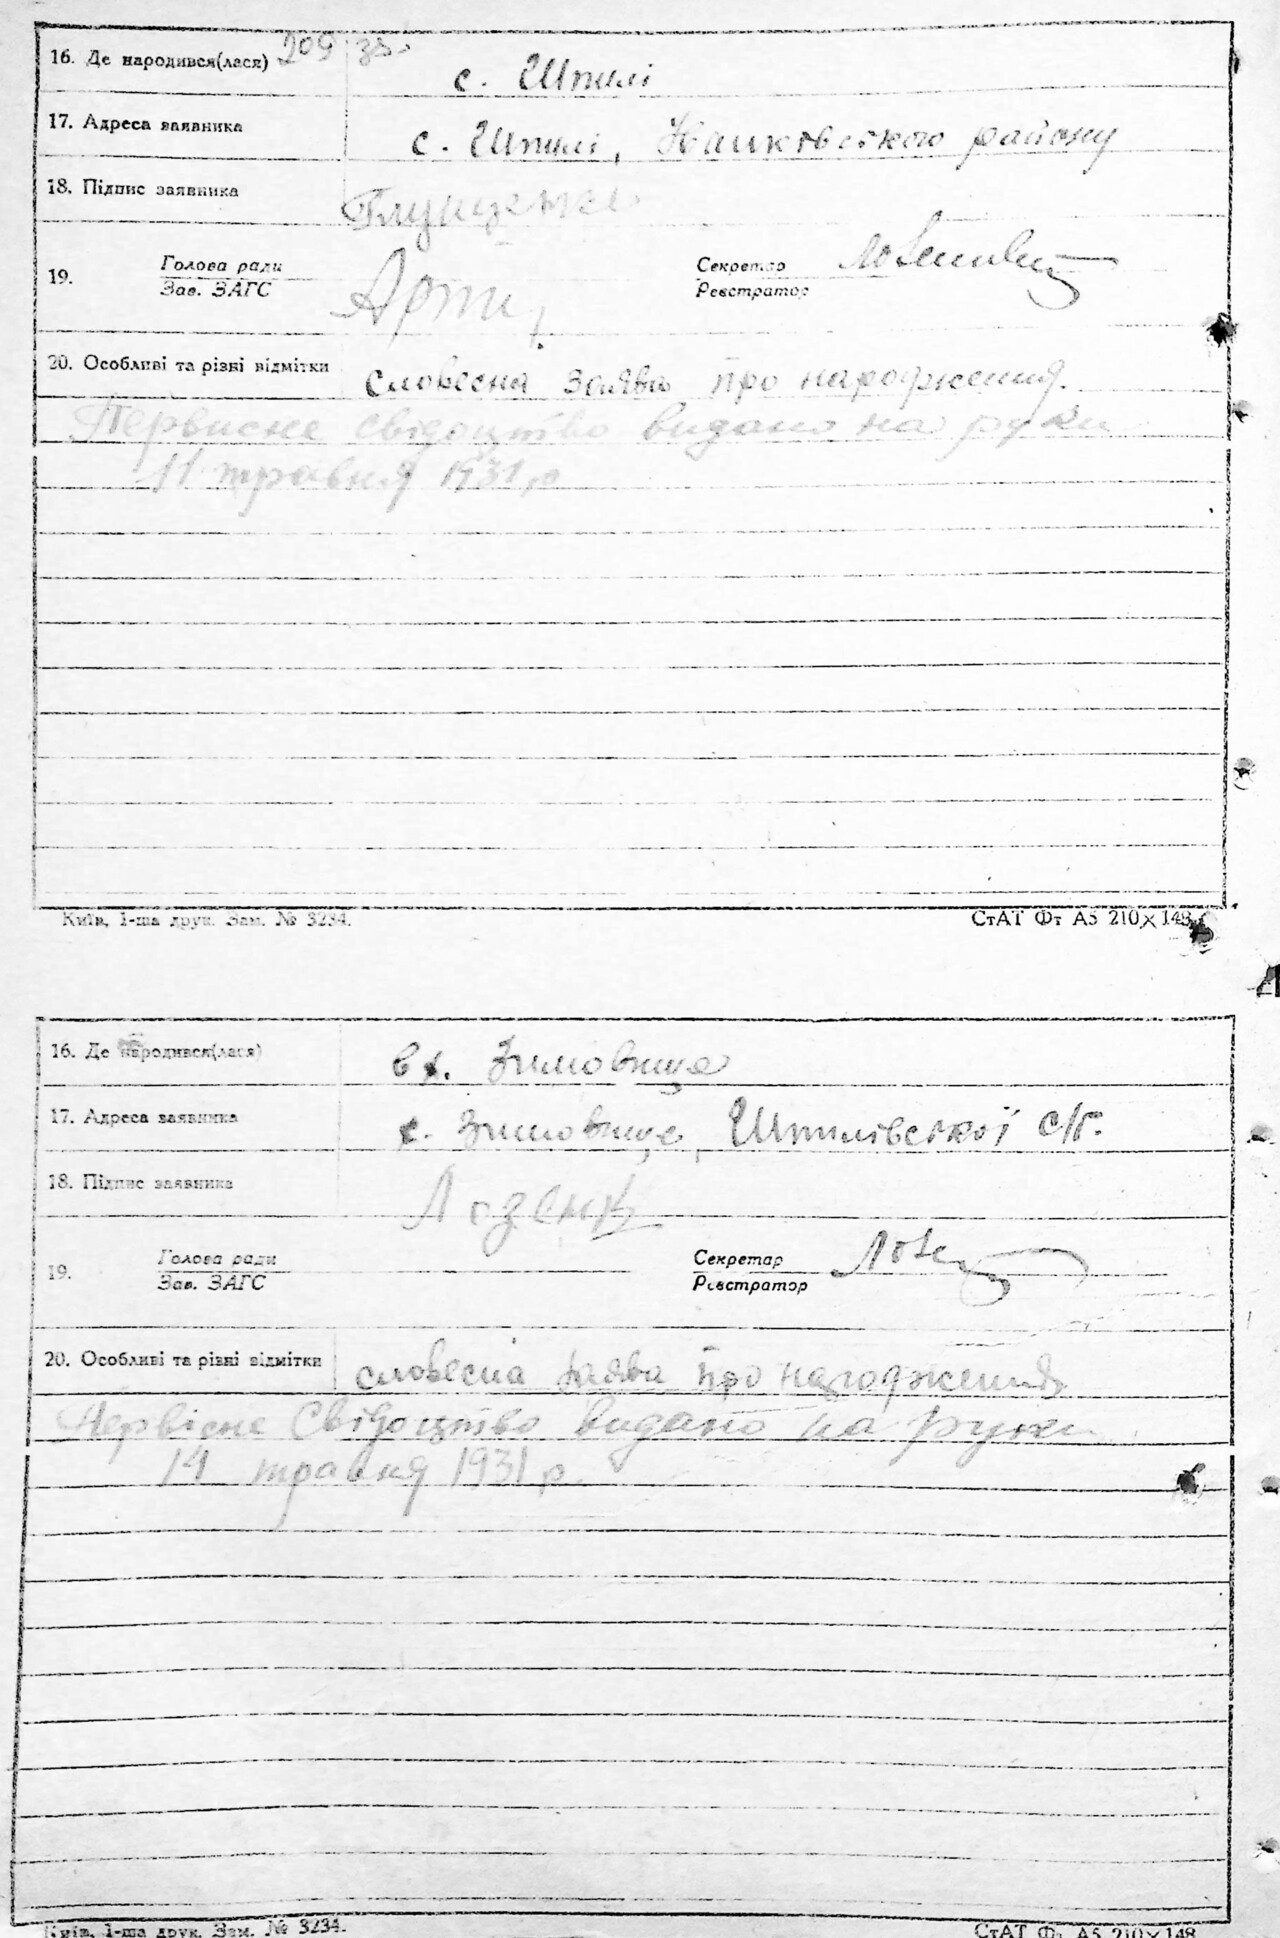 209 зв.
16. Де народився(лася) с. Шпилі
17. Адреса заявника с. Шпилі, Наиковського району
18. Підпис заявника
19. Голова ради Секретар
Зав. ЗАГС Реєстратор
20. Особливі та різні відмітки словесна заява про народження.
Первисне свідоцтво видано на руки
11 травня 1931 р
Київ, 1-ша друк. Зам. № 3234. СтАТ Фт А5 210×148
16. Де народився(лася) в х. Зимовище
17. Адреса заявника х. Зимовище, Шпилівської с/г.
18. Підпис заявника
19. Голова ради Секретар
Зав. ЗАГС Реєстратор
20. Особливі та різні відмітки словесна заява про народження
Первісне Свідоцтво видано на руки
14 травня 1931 р.
Київ, 1-ша друк. Зам. № 3234. СтАТ Фт А5 210×148